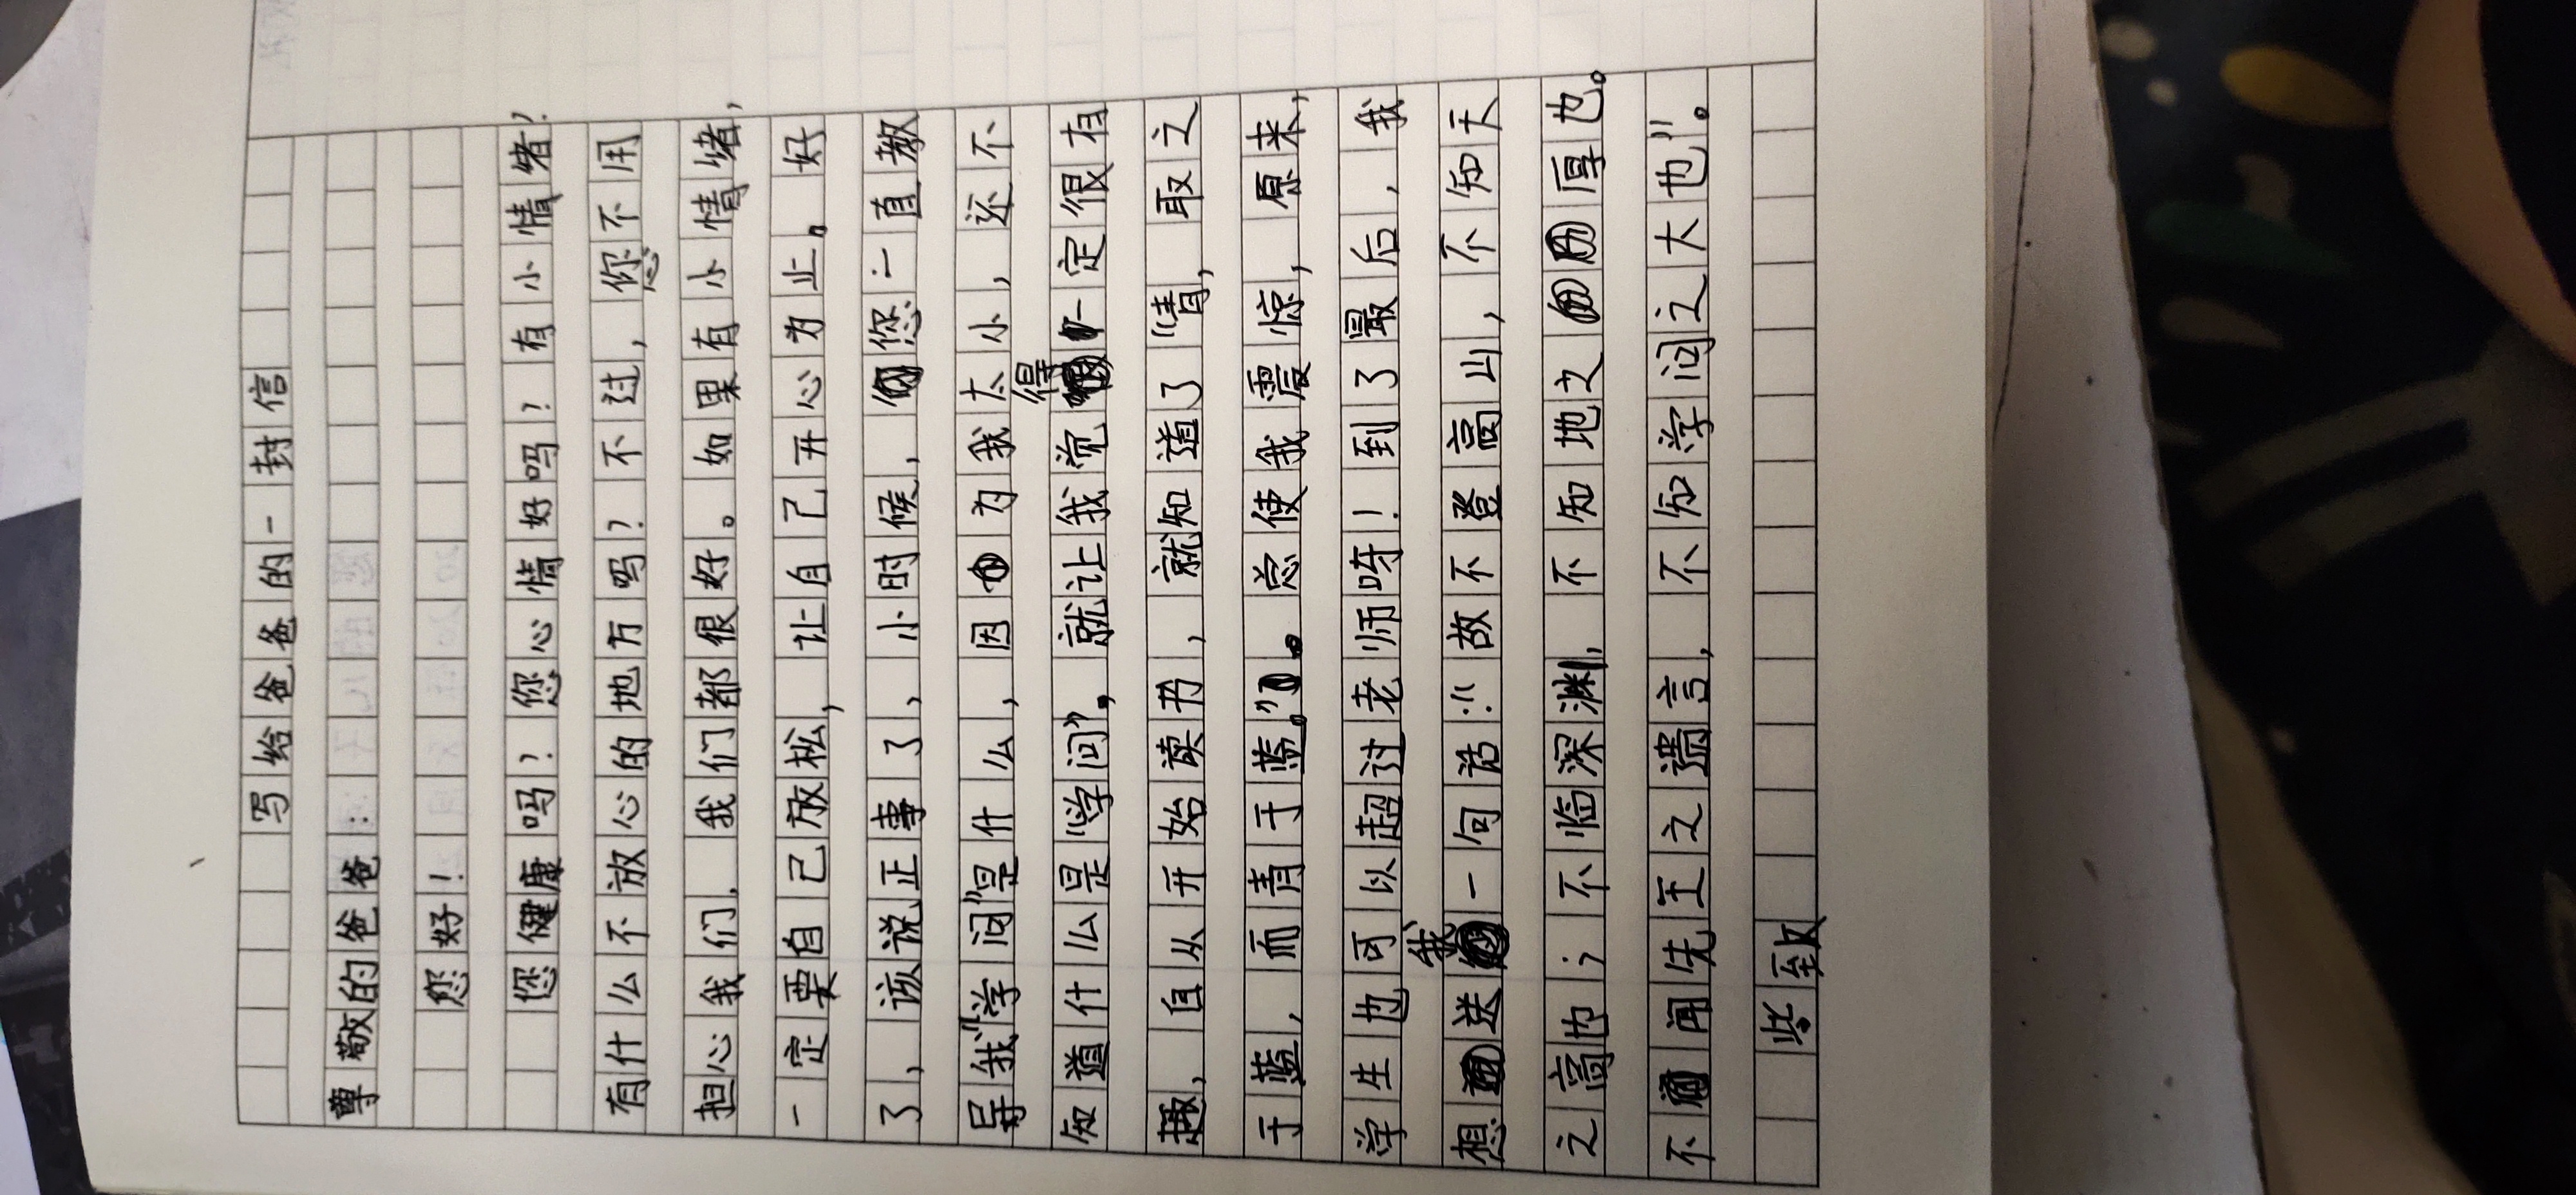 写给爸爸的一封信
尊敬的爸爸：
您好！
您健康吗？您心情好吗？有小情绪？
有什么不放心的地方吗？不过，您不用
担心我们，我们都很好。如果有小情绪，
一定要自己放松，让自己开心为止。好
了，该说正事了，小时候，您一直教
导我“学问”是什么，因为我太小，还不
知道什么是“学问”，就让我觉得一定很有
趣，自从开始读书，就知道了“青，取之
于蓝，而青于蓝。”。总使我震惊，原来，
学生也可以超过老师呀！到了最后，我
想送我一句话：“故不登高山，不知天
之高也；不临深渊，不知地之厚也。
不闻先王之遗言，不知学问之大也”。
此致